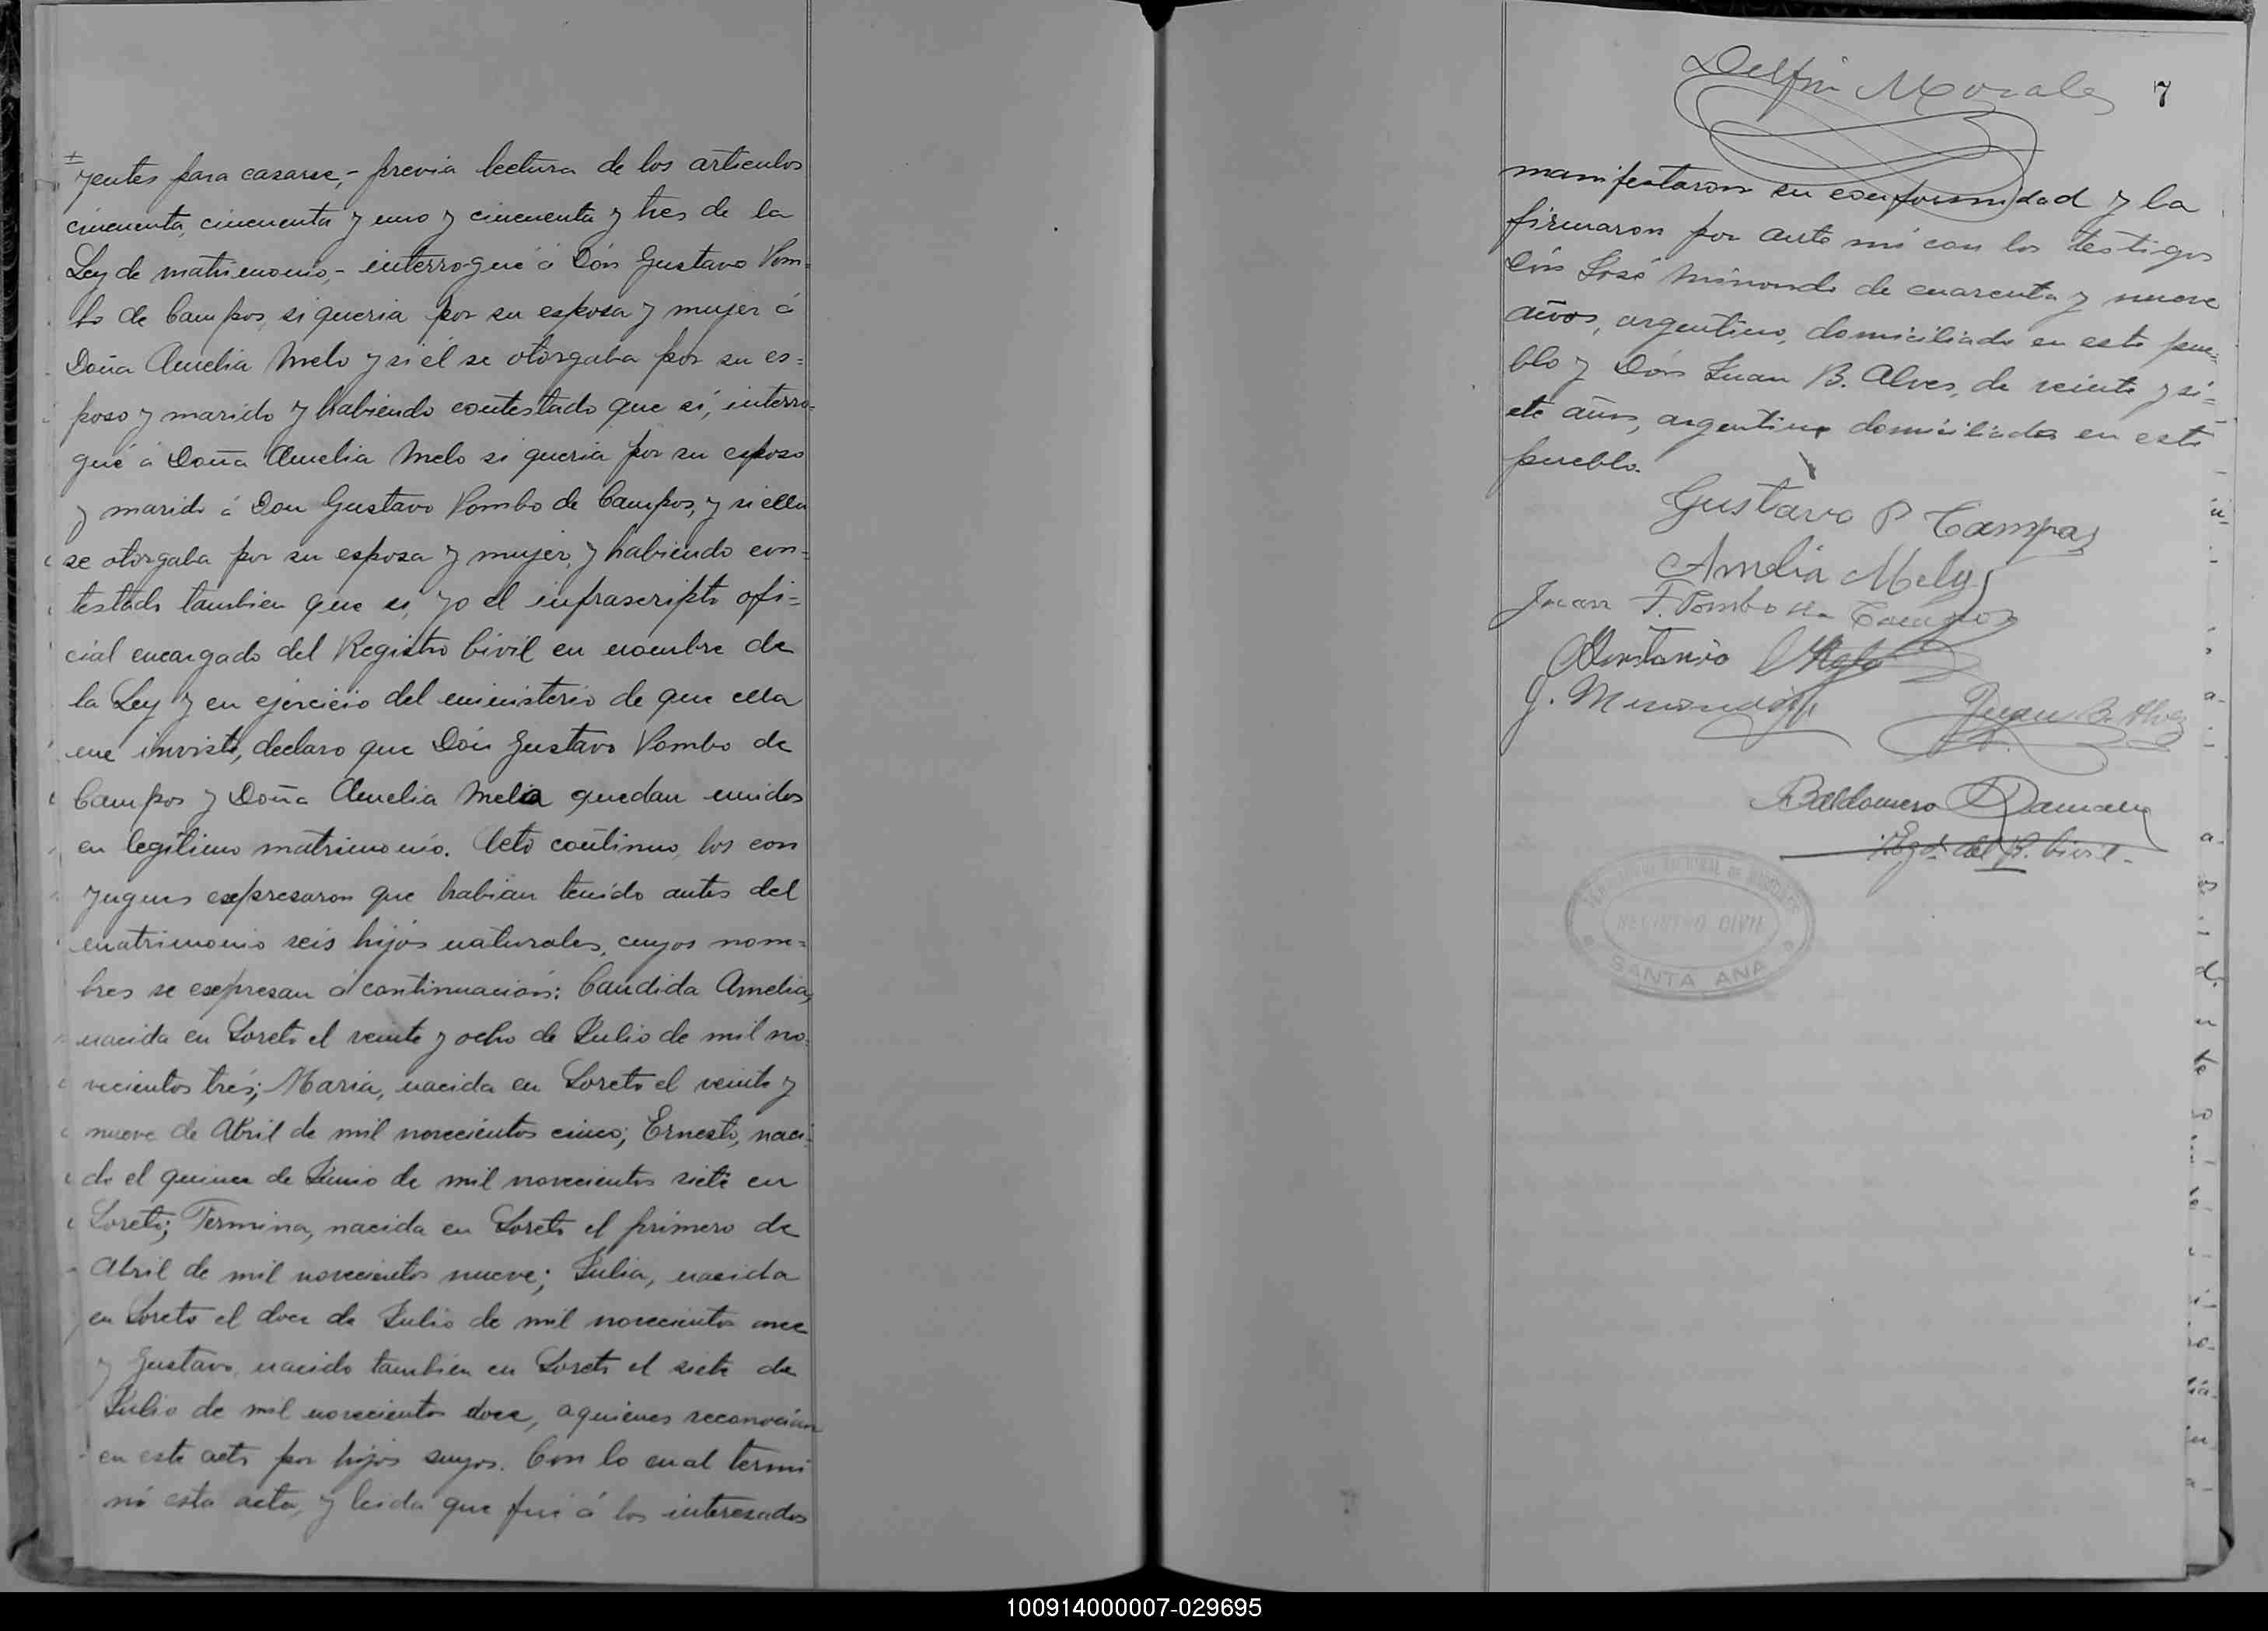 yentes para casarse,- previa lectura de los articulos
cincuenta, cincuenta y uno y cincuenta y tres de la
Ley de matrimonio,- interrogué á Dón Gustavo Pom=
bo de Campos, si queria por su esposa y mujer á
Doña Amelia Melo y si él se otorgaba por su es=
poso y marido y habiendo contestado que sí, interro-
gué á Doña Amelia Melo si queria por su esposo
y marido á Don Gustavo Pombo de Campos, y si ella
se otorgaba por su esposa y mujer, y habiendo con-
testado tambien que si, yo el infrascripto ofi=
cial encargado del Registro Civil en nombre de
la Ley y en ejercicio del ministerio de que ella
me inviste, declaro que Dón Gustavo Pombo de
Campos y Doña Amelia Melo quedan unidos
en legítimo matrimonio. Acto contínuo, los con
yugues expresaron que habian tenido antes del
matrimonio seis hijos naturales, cuyos nom=
bres se expresan á continuación: Candida Amelia,
nacida en Loreto el veinte y ocho de Julio de mil no-
vecientos tres; Maria, nacida en Loreto el veinte y
nueve de Abril de mil novecientos cinco; Ernesto, naci-
do el quince de Junio de mil novecientos siete en
Loreto; Fermina, nacida en Loreto el primero de
Abril de mil novecientos nueve; Julia, nacida
en Loreto el doce de Julio de mil novecientos once
y Gustavo, nacido tambien en Loreto el siete de
Julio de mil novecientos doce, a quienes reconocian
en este acto por hijos suyos. Con lo cual termi
nó esta acta, y leida que fué á los interesados
Delfin Morales
7
manifestaron su conformidad y la
firmaron por ante mí con los testigos
Dón José Minondo de cuarenta y nueve
años, argentino, domiciliado en este pue=
blo y Dón Juan B. Alves, de veinte y si=
ete años, argentino domiciliado en este
pueblo.
Gustavo P Campos
Amelia Melo
Juan F. Pombo de Campos
Constancio
J. Minondo
Juan B. Alves
Baldomero
Engdo del R. Civil.
REGISTRO CIVIL
SANTA ANA
100914000007-029695